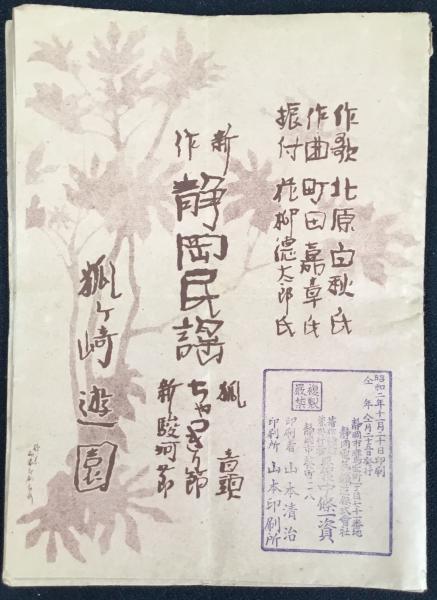 作歌 北原白秋氏
作曲 町田嘉章氏
振付 花柳徳太郎氏
新作 静岡民謡
狐音頭
ちゃっきり節
新駿河節
狐ヶ崎遊園
複製厳禁
昭和二年十一月二十日印刷
静岡電気鉄道株式會社
印刷者 山本清治
印刷所 山本印刷所